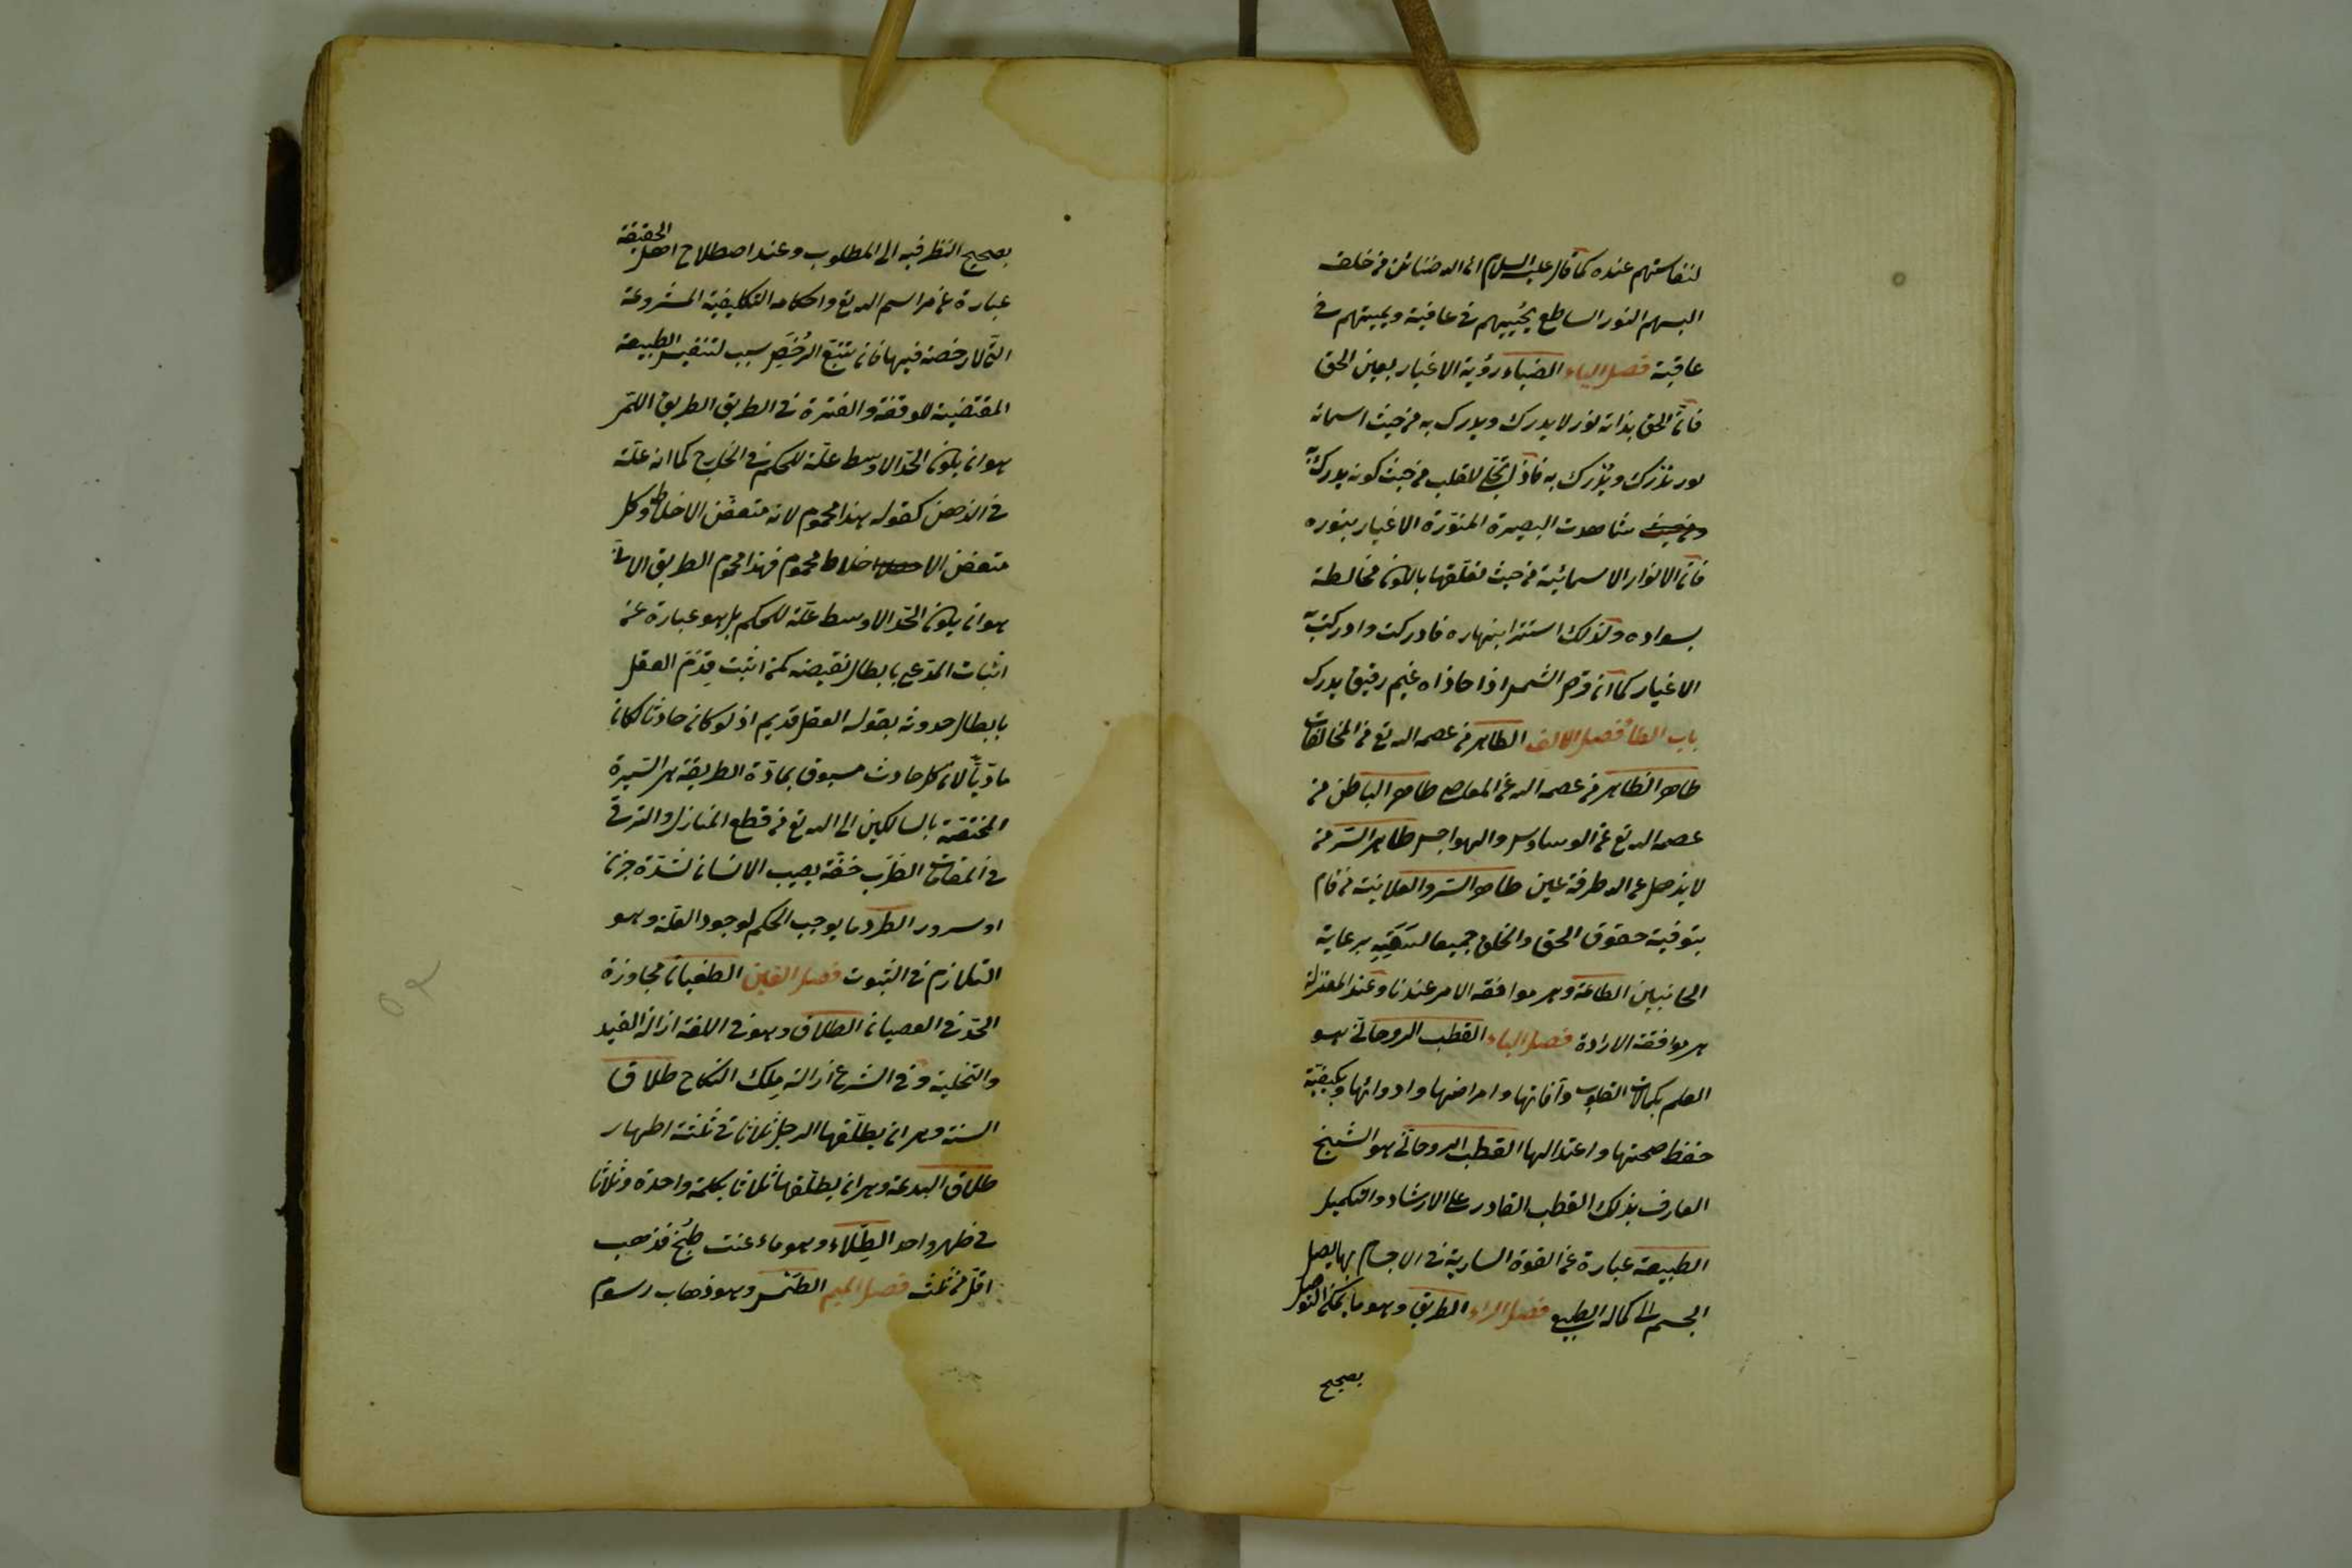 لنفاستهم عنده كما قال عليه السلام ان الله ضنائن من خلقه
البسهم النور الساطع يحييهم في عافية ويميتهم في
عافية فصل الياء الضياء رؤية الاغيار بعين الحق
فان الحق بذاته نور لا يدرك ويدرك به من حيث اسمائه
نور يدرك ويدرك به فاذا تجلى للقلب من حيث كونه يدرك به
شاهدت البصيرة المنورة الاغيار بنوره
فان الانوار الاسمائية من حيث تعلقها بالكون مخالطة
بسواده ولذلك استتر انبهاره فادركت وادركت به
الاغيار كما ان قرص الشمس اذا حاذاه غيم رقيق يدرك
باب الطاء فصل الالف الطاهر من عصمه الله تع من المخالفات
طاهر الظاهر من عصمه الله عن المعاصي طاهر الباطن من
عصمه الله تع عن الوساوس والهواجس طاهر السر من
لا يذهل عن الله طرفة عين طاهر السر والعلانية من قام
بتوفية حقوق الحق والخلق جميعا لسعته برعاية
الجانبين الطاعة وهي موافقة الامر عندنا وعند المعتزلة
هي موافقة الارادة فصل الباء القطب الروحاني هو
العلم بكمالات القلوب وآفاتها وامراضها وادوائها وبكيفية
حفظ صحتها واعتدالها القطب الروحاني هو الشيخ
العارف بذلك القطب القادر على الارشاد والتكميل
الطبيعة عبارة عن القوة السارية في الاجسام بها يصل
الجسم الى كماله الطبيعي فصل الراء الطريق وهو ما يمكن التوصل
بصحيح
بصحيح النظر فيه الى المطلوب وعند اصطلاح اهل الحقيقة
عبارة عن مراسم الله تع واحكامه التكليفية المشروعة
التي لا رخصة فيها فان تتبع الرخص سبب لتنفيس الطبيعة
المقتضية للوقفة والفترة في الطريق الطريق اللمي
هو ان يكون الحد الاوسط علة للحكم في الخارج كما انه علة
في الذهن كقوله هذا محموم لانه متعفن الاخلاط وكل
متعفن الاخلاط محموم فهذا محموم الطريق الاني
هو ان يكون الحد الاوسط علة للحكم بل هو عبارة عن
اثبات المدعي بابطال نقيضه كمن اثبت قدم العقل
بابطال حدوثه بقوله العقل قديم اذ لو كان حادثا لكان
ماديا لان كل حادث مسبوق بمادة الطريقة هي السيرة
المختصة بالسالكين الى الله تع من قطع المنازل والترقي
في المقامات الطرب خفة يصيب الانسان لشدة حزن
او سرور الطرد ما يوجب الحكم لوجود العلة وهو
التلازم في الثبوت فصل الغين الطغيان مجاوزة
الحد في العصيان الطلاق وهو في اللغة ازالة القيد
والتخلية وفي الشرع ازالة ملك النكاح طلاق
السنة وهي ان يطلقها الرجل ثلاثا في ثلثة اطهار
طلاق البدعة وهي ان يطلقها ثلاثا بكلمة واحدة وثلاثا
في طهر واحد الطلاء وهو ماء عنب طبخ فذهب
اقل من ثلث فصل الميم الطمس وهو ذهاب رسوم